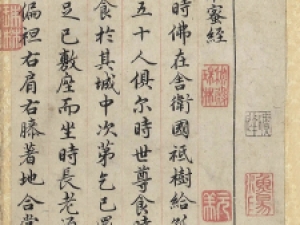 蜜經
時佛在舍衛國祇樹給
五十人俱尔時世尊食時
食於其城中次第乞已
足已敷座而坐時長老
偏袒右肩右膝著地合掌